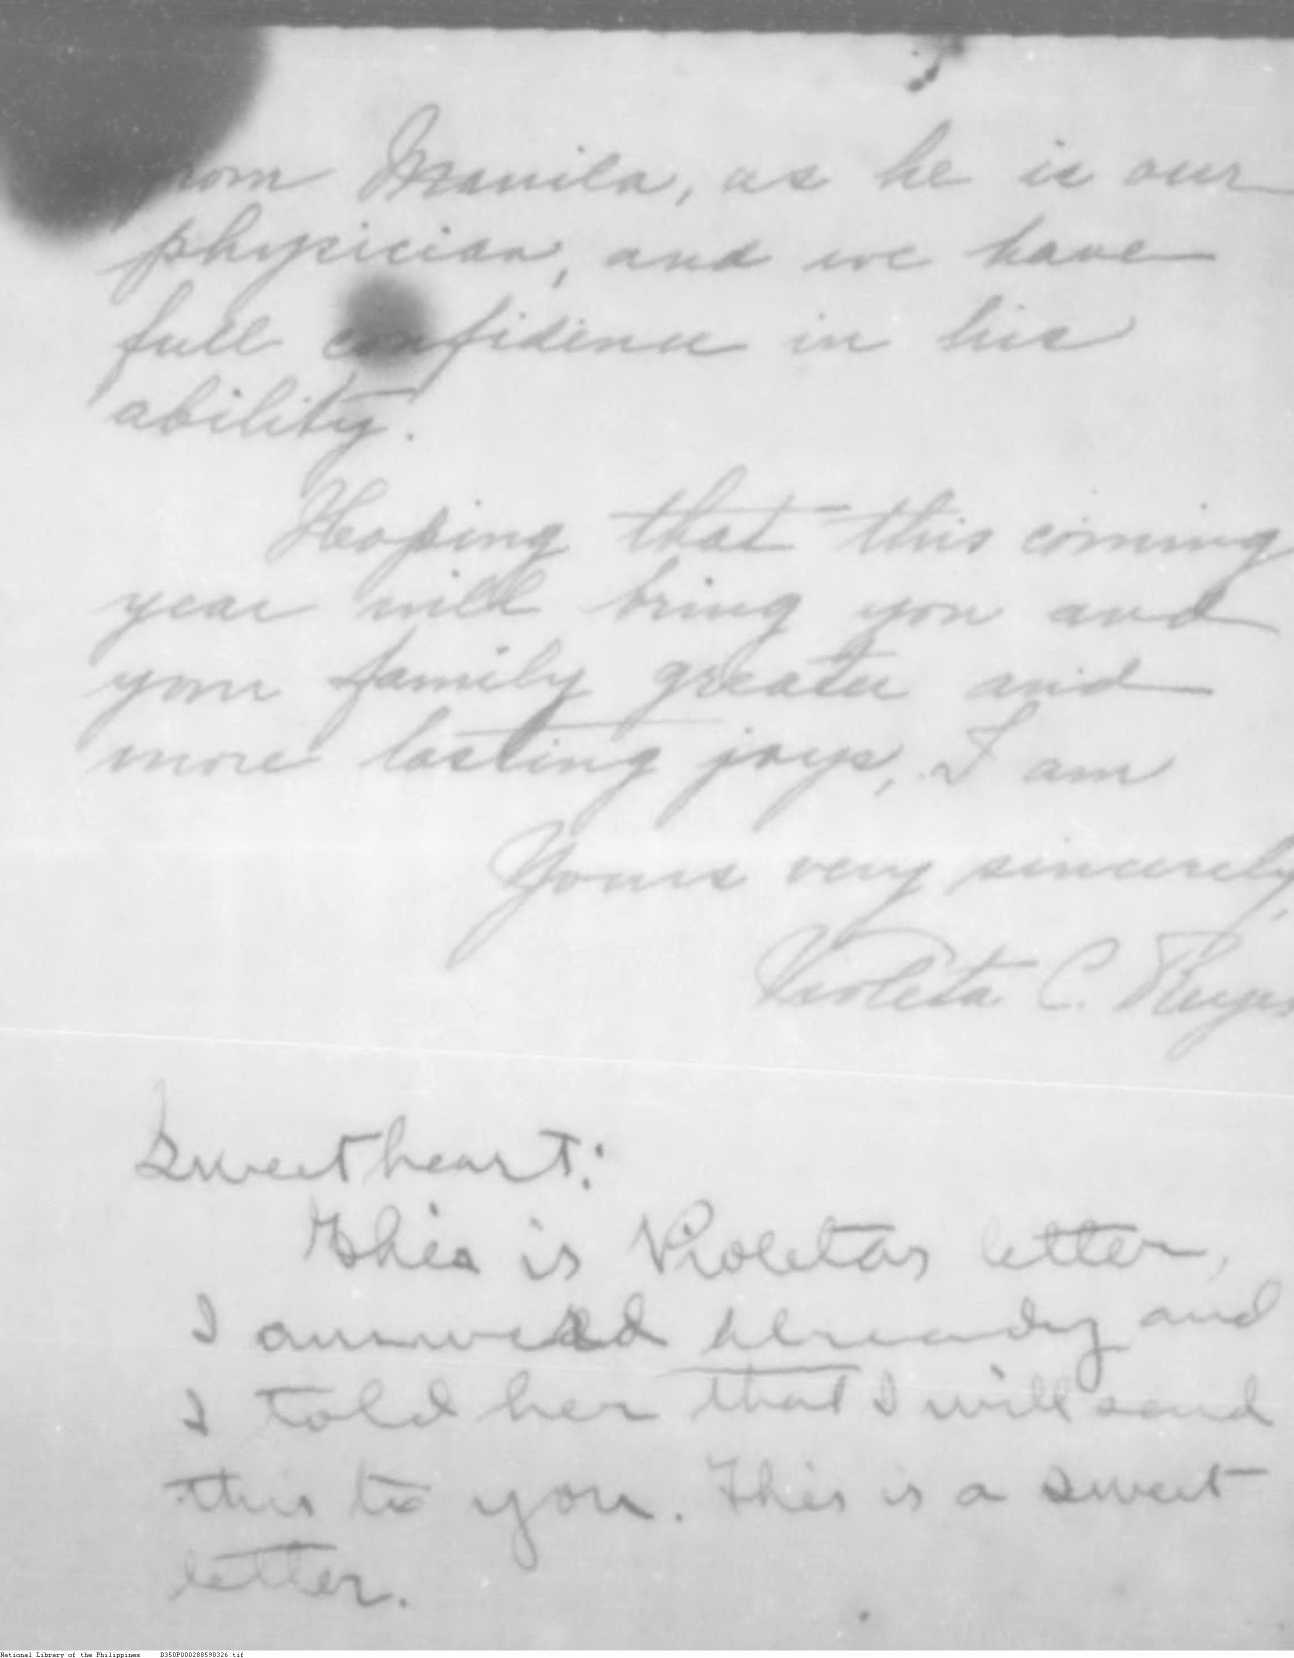 from Manila, as he is our
physician, and we have
full confidence in his
ability.
Hoping that this coming
year will bring you and
your family greater and
more lasting joys, I am
Yours very sincerely,
Violeta C. Reyes
Sweetheart:
This is Violetas letter,
I answered already and
I told her that I will send
this to you. This is a sweet
letter.
National Library of the Philippines B350P00028859B326.tif